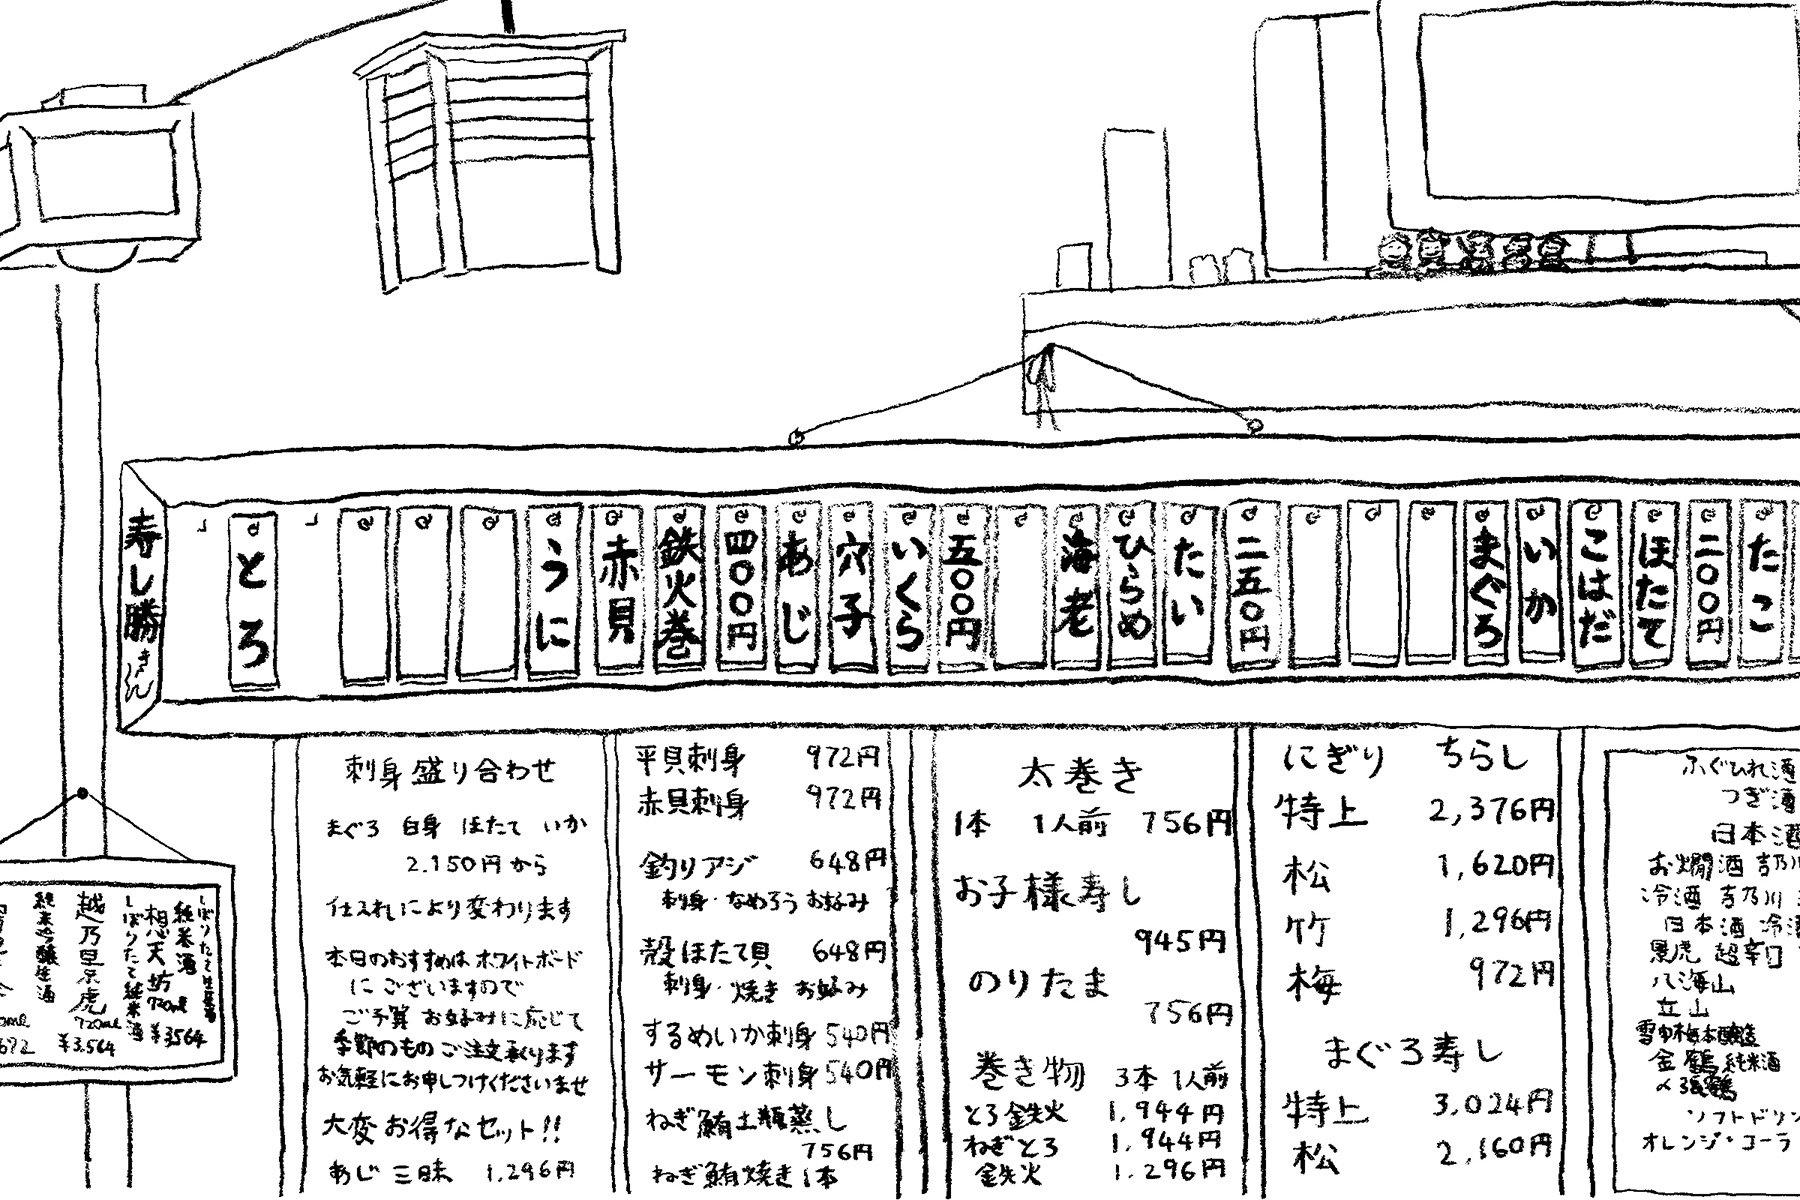 寿し勝
とろ
うに
赤貝
鉄火巻
四〇〇円
あじ
穴子
いくら
五〇〇円
海老
ひらめ
たい
二五〇円
まぐろ
いか
こはだ
ほたて
二〇〇円
たこ
しぼりたて生原酒
純米酒
相心天坊
720ml
¥3564
しぼりたて純米酒
越乃景虎
720ml
¥3.564
純米吟醸生酒
刺身盛り合わせ
まぐろ 白身 ほたて いか
2.150円から
仕入れにより変わります
本日のおすすめは ホワイトボード
にございますので
ご予算 お好みに応じて
季節のもの ご注文承ります
お気軽にお申しつけくださいませ
大変お得なセット!!
あじ 三昧 1,296円
平貝刺身 972円
赤貝刺身 972円
釣りアジ 648円
刺身・なめろう お好み
殻ほたて貝 648円
刺身・焼き お好み
するめいか刺身 540円
サーモン刺身 540円
ねぎ鮪土瓶蒸し
756円
ねぎ鮪焼き 1本
太巻き
1本 1人前 756円
お子様寿し
945円
のりたま
756円
巻き物 3本 1人前
とろ鉄火 1,944円
ねぎとろ 1.944円
鉄火 1.296円
にぎり ちらし
特上 2,376円
松 1,620円
竹 1,296円
梅 972円
まぐろ寿し
特上 3,024円
松 2,160円
ふぐひれ酒
つぎ酒
日本酒
お燗酒 吉乃川
冷酒 吉乃川
日本酒 冷酒
景虎 超辛口
八海山
立山
雪中梅本醸造
金鶴 純米酒
〆張鶴
ソフトドリン
オレンジ・コーラ